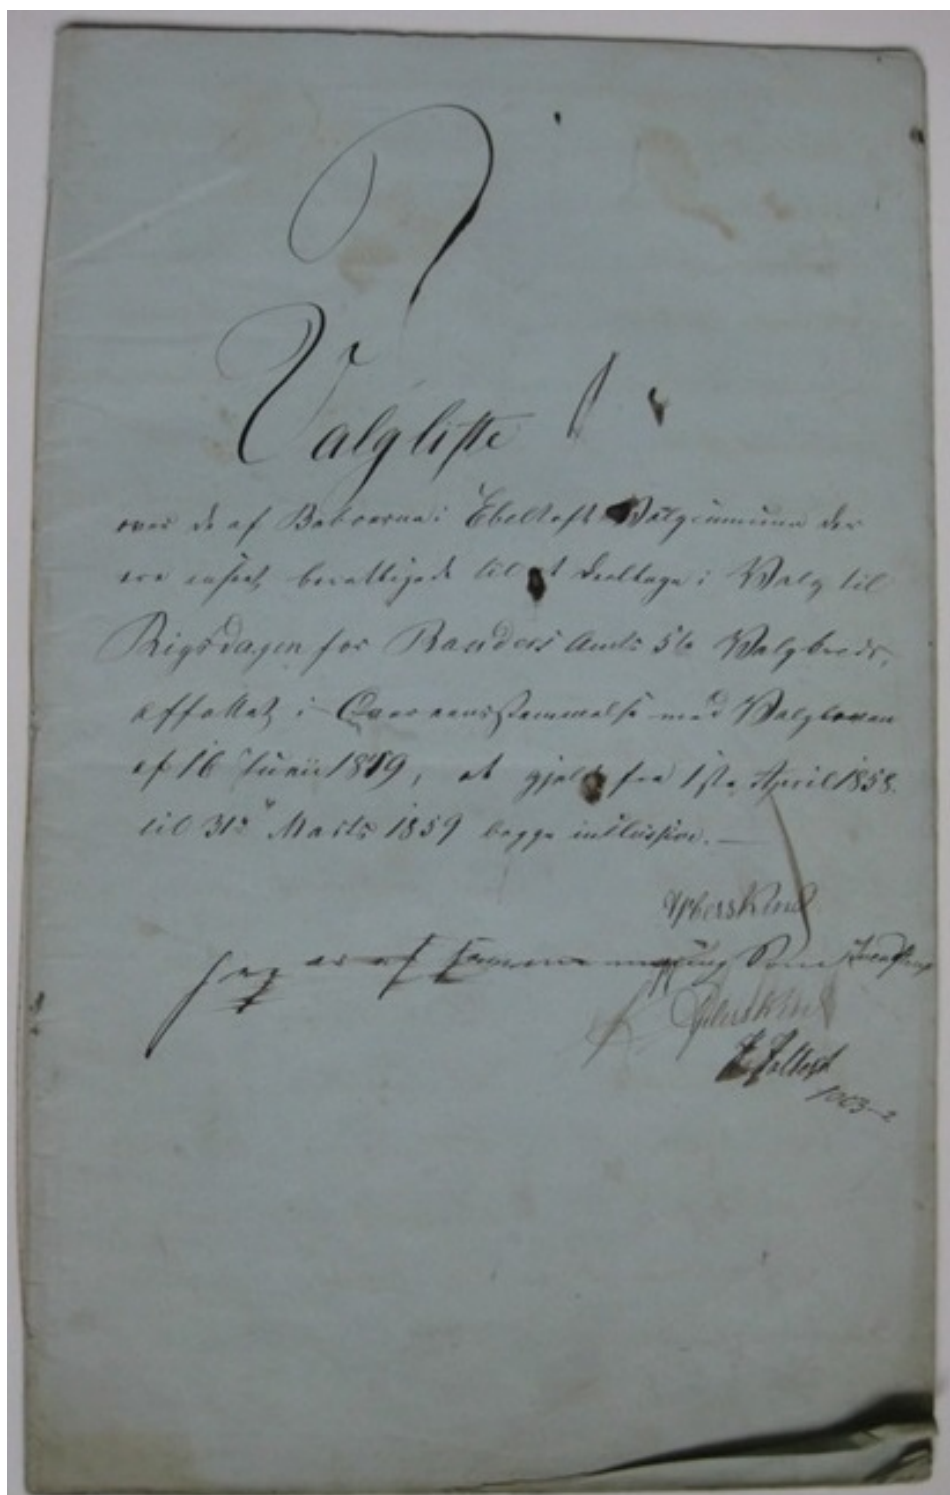 Valgliste
over de af Beboerne i Ebeltoft Valgcommune der
ere ansete berettigede til at deeltage i Valg til
Rigsdagen for Randers Amts 5te Valgkreds,
affattet i Overeensstemmelse med Valgloven
af 16 Junii 1849, at gjelde fra 1ste April 1858.
til 31te Marts 1859 begge inklusive. —
1063-2